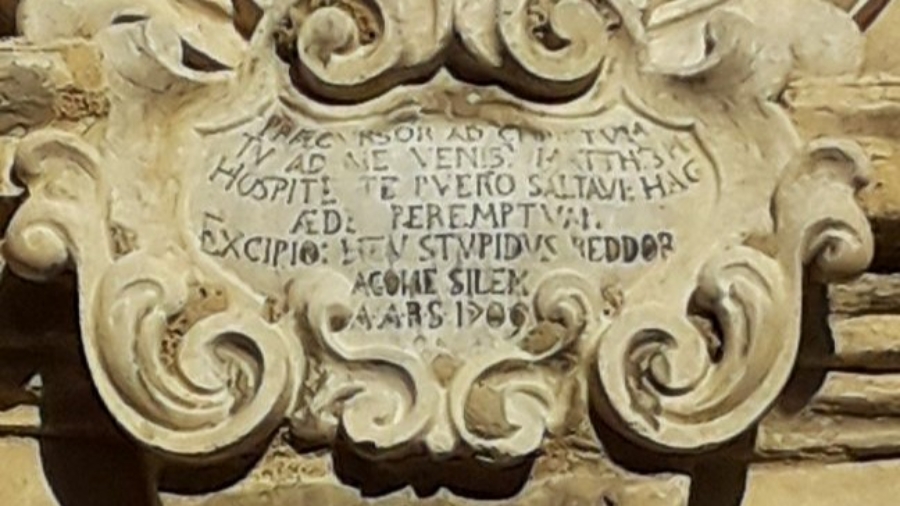 PRÆCVRSOR AD CHRISTVM
TV AD ME VENIS?
HOSPITE TE PVERO SALTAVI: HAC
ÆDE PEREMPTVM
EXCIPIO: HEV STVPIDVS REDDOR
AGONE SILEN
A·A·R·S· 1706